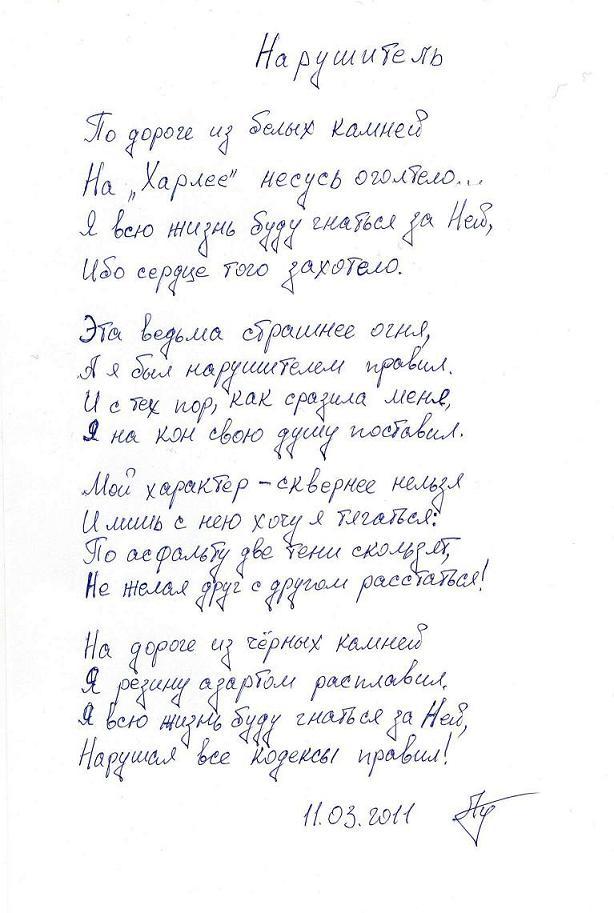 Нарушитель
По дороге из белых камней
На „Харлее" несусь оголтело...
Я всю жизнь буду гнаться за Ней,
Ибо сердце того захотело.
Эта ведьма страшнее огня,
А я был нарушителем правил.
И с тех пор, как сразила меня,
Я на кон свою душу поставил.
Мой характер – сквернее нельзя
И лишь с нею хочу я тягаться:
По асфальту две тени скользят,
Не желая друг с другом расстаться!
На дороге из чёрных камней
Я резину азартом расплавил.
Я всю жизнь буду гнаться за Ней,
Нарушая все кодексы правил!
11.03.2011